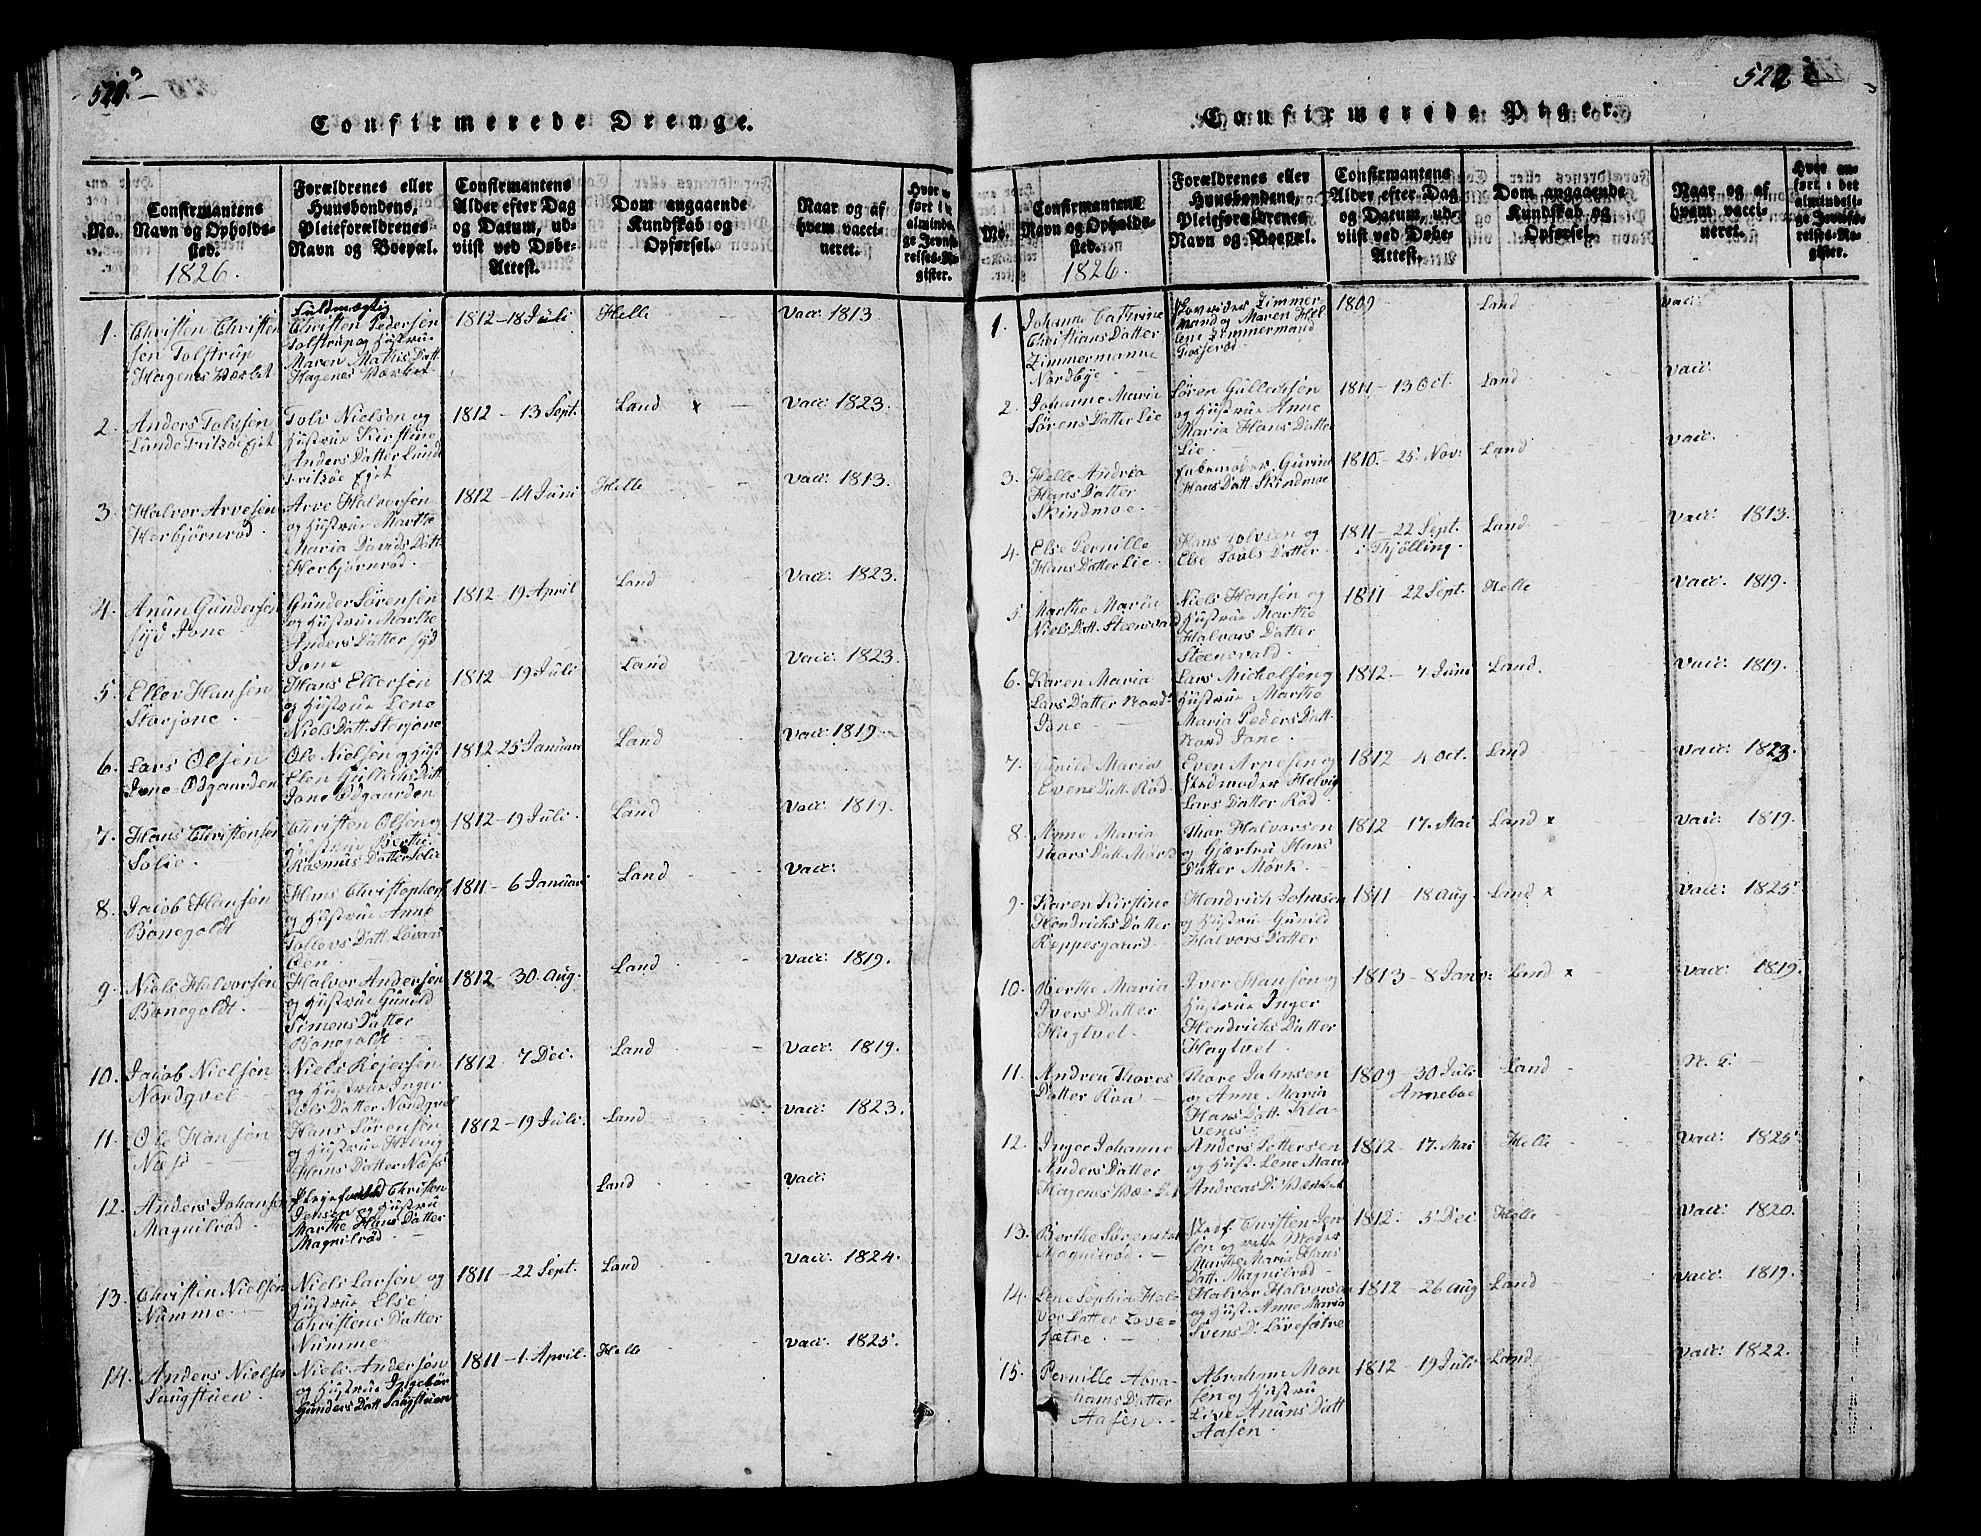 Confirmerede Drenge.
No.
Confirmantens
Navn og Opholds-
sted.
1826.
Forældrenes eller
Huusbondens,
Pleieforældrenes
Navn og Boepæl.
Confirmantens
Alder efter Dag
og Datum, ud-
viist ved Døbe-
Attest.
Dom angaaende
Kundskab og
Opførsel.
Naar og af
hvem vacci-
neret.
1.
Christen Christen
sen Tolstrup
Hagenes Værket
Fuldmægtig
Christen Pedersen
Tolstrup og Hustrue
Maren Mathis Datt.
Hagenes Værket
1812 - 18 Juli
Helle
Vacc 1813
2.
Anders Tolvsen
Lunde Fritsøe Ejet
Tolv Nielsen og
Hustrue Kirstine
Anders Datter Lunde
Fritsøe Ejet
1812 - 13 Sept.
Land x
Vacc: 1823.
3.
Halvor Arvesen
Herbjørnrød
Arve Halvorsen
og Hustrue Marthe
Maria Davids Datt.
Herbjørnrød
1812 - 14 Juni
Helle
Vacc: 1813.
4.
Anun Gundersen
Syd Jone
Gunder Sørensen
og Hustrue Marthe
Anders Datter Syd
Jone
1812 - 19 April
Land
Vacc: 1823.
5.
Ellev Hansen
Størjone
Hans Ellevsen
og Hustrue Lene
Niels Datt. Størjone
1812 - 19 Juli
Land
Vacc: 1823.
6.
Lars Olsen
Jone Odgaarden
Ole Nielsen og Hust.
Elen Gullechs Datt.
Jone Odgaarden
1812 25 Januari
Land
Vacc: 1819.
7.
Hans Christensen
Solie.
Christen Olsen og
Hustrue Berthe
Rasmus Datter Solie
1812 - 19 Juli
Land
Vacc: 1819.
8.
Jacob Hansen
Bonegoldt
Hans Christophers
og Hustrue Anne
1811 - 6 Januari
Land
Vacc:
9.
Niels Halvorsen
Bonegoldt.
Halvor Andersen
og Hustrue Gunild
Simens Datter
Bonegoldt
1812 - 30 Aug.
Land
Vacc: 1819.
10.
Jacob Nielsen
Nordqvel
Niels Rejersen
og Hustrue Inger
Tolvs Datter Nordqvel
1812 - 7 Dec.
Land
Vacc: 1819.
11.
Ole Hansen
Niese
Hans Sørensen
og Hustrue Helvig
Hans Datter Næss
1812 - 19 Juli.
Land
Vacc: 1823.
12.
Anders Johansen
Magnilrød
Christen
Jensen og Hustru
Marthe Hans Datter
Magnilrød
Land
Vacc:
13.
Christen Nielsen
Numme
Niels Larsen og
Hustrue Else
Christens Datter
Numme
1811 - 22 Sept.
Land
Vacc: 1824.
14.
Anders Nielsen
Saugstuen
Niels Andersen
og Hustrue Ingebor
Gunders Datt Saugstuen
1811 - 1. April.
Helle
Vacc: 1825.
522
Confirmerede Piger.
No.
Confirmantens
Navn og Opholds-
sted.
1826.
Forældrenes eller
Huusbondens,
Pleieforældrenes
Navn og Boepæl.
Confirmantens
Alder efter Dag
og Datum, ud-
viist ved Døbe-
Attest.
Dom angaaende
Kundskab og
Opførsel.
Naar og af
hvem vacci-
neret.
Hvor an-
ført i det
almindeli-
ge Jevnfø-
relses-Re-
gister.
1.
Johanne Cathrine
Christians Datter
Zimmermanne
Nordbye
Zimmer
mand og Maren Hel
ene Zimmermand
1809
Land
Vacc:
2.
Johanne Maria
Sørens Datter Lie
Søren Gullechsen
og Hustrue Anne
Maria Hans Datter
Lie.
1811 - 13 Oct.
Land
Vacc:
3.
Helle Andrea
Hans Datter
Skindmoe
Gurine
Hans Datt. Skindmoe
1810 - 25 Nov:
Land
Vacc:
4.
Else Pernille
Hans Datter Lie
Hans Tolvsen og
Else Tovls Datter
1811 - 22 Sept.
i Thjølling.
Land
Vacc: 1813.
5.
Marthe Maria
Niels Datt. Steensvald
Niels Hansen og
Hustrue Marthe
Halvors Datter
Steensvald.
1811 - 22 Sept.
Helle
Vacc: 1819.
6.
Karen Maria
Lars Datter Nord
Jone
Lars Michelsen og
Hustrue Marthe
Maria Peders Datt.
Nord Jone
1812 - 7 Juni
Land
Vacc: 1819.
7.
Gunild Maria
Evens Datt. Rød
Even Arnesen og
Stedmoder Helvig
Lars Datter Rød
1812 4 Oct.
Land
Vacc: 1823.
8.
Anne Maria
Thors Datt. Mørk
Thor Halvorsen
og Gjærtru Hans
Datter Mørk
1812 - 17. Mai
Land x
Vacc: 1819.
9.
Karen Kirstine
Hendrichs Datter
Reppesgaard
Hendrich Johnsen
og Hustrue Gunild
Halvors Datter
1811 18 Aug.
Land x
Vacc: 1825
10.
Berthe Maria
Ivers Datter
Hagtvet
Iver Hansen og
Hustrue Inger
Hendrichs Datter
Hagtvet
1813 - 8 Janv:
Land x
Vacc: 1819.
11.
Andrea Thores
Datter Roa
Thore Johnsen
og Anne Maria
Hans Datt. Kla
venes
1809 - 30 Juli
Anneboe
Land
12.
Inger Johanne
Anders Datter
Hagenes Værket
Anders Pettersen
og Hust. Lene Maria
Andreas D. Værket
1812 - 17. Mai
Helle
Vacc: 1825
13.
Berthe Sørensdat
Magnilrød
Stedf. Christen Jen
sen og Moder
Marthe Maria Hans
Datt. Magnilrød
1812. 5 Dec
Helle
Vacc: 1820.
14.
Lene Sophia Hal
vors Datter Løve-
sætre
Halvor Halvorsen
og Hust. Anne Maria
Svens D. Løvesætre
1812 - 26 Aug
Land
Vacc: 1819.
15.
Pernille Abra
hams Datter
Aasen
Abraham Mon
sen og Hustru
Live Anuns Datt
Aasen
1812 - 19 Juli
Land
Vacc: 1822.